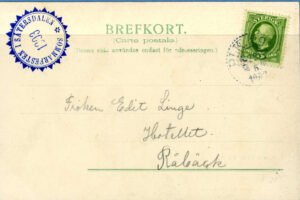 SOMMARFESTEN I SÄTERSDALEN
1933
BREFKORT.
(Carte postale.)
(Denna sida användes endast för adresseringen.)
SVERIGE
Fröken Edit Linge
Hotellet
Råbäck